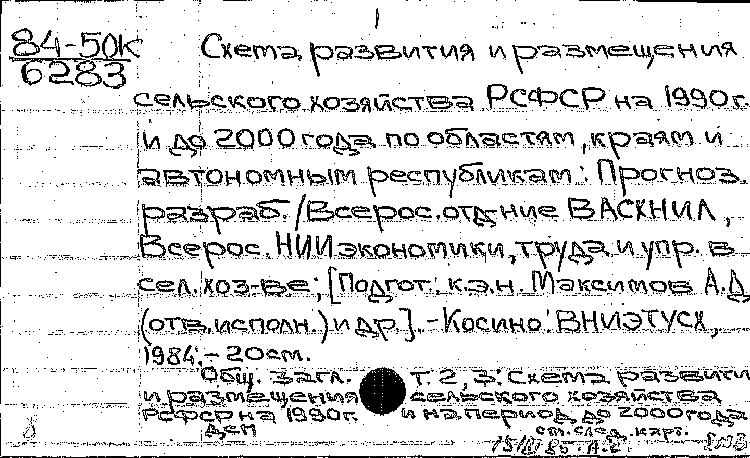 84-50к
6283
Схема развития и размещения
сельского хозяйства РСФСР на 1990 г.
и до 2000 года по областям, краям и
автономным республикам: Прогноз.
разраб. / Всерос. отд-ние ВАСХНИЛ,
Всерос. НИИ экономики, труда и упр. в
сел. хоз-ве; [Подгот.: к.э.н. Максимов А.Д
(отв. исполн.) и др.]. - Косино: ВНИЭТУСХ,
1984. - 20 см.
Общ. загл. т. 2, 3: Схема развити
и размещения сельского хозяйства
РСФСР на 1990 г. и на период до 2000 года
ДСП см. след. карт.